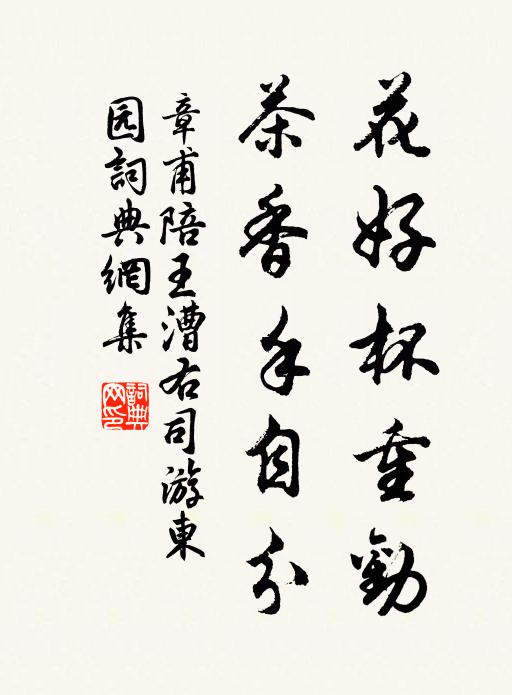 花好杯重勸
茶香手自分
章甫陪王漕右司游東
园詞典網集
詞典
网印